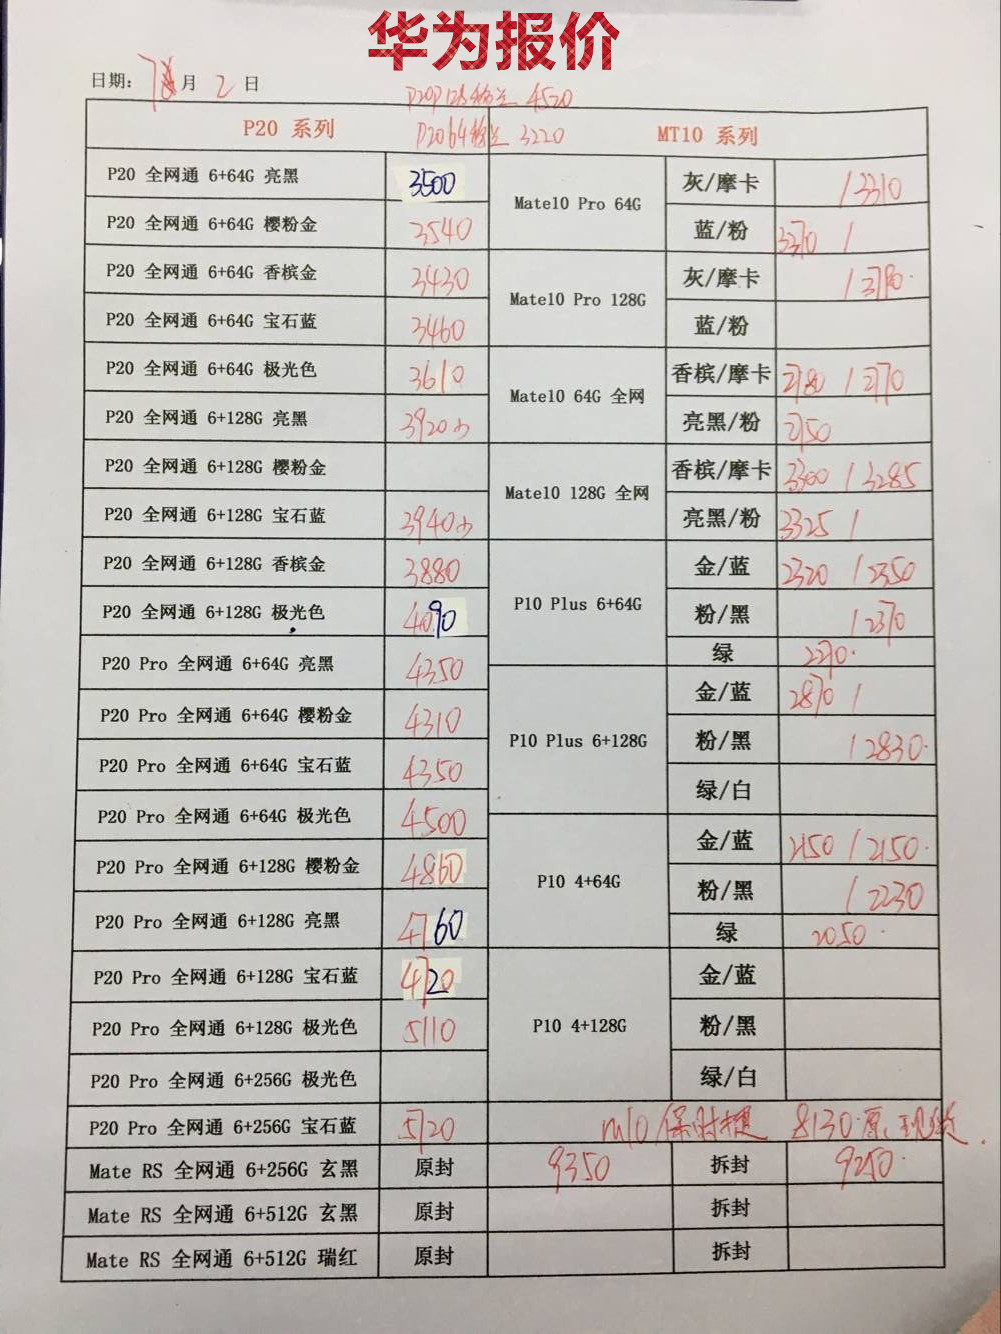 华为报价
日期: 7月 2 日
P20P128 4520
P20 64 3220
P20 系列 MT10 系列
P20 全网通 6+64G 亮黑 3500
P20 全网通 6+64G 樱粉金 3540
P20 全网通 6+64G 香槟金 3430
P20 全网通 6+64G 宝石蓝 3460
P20 全网通 6+64G 极光色 3610
P20 全网通 6+128G 亮黑 3920
P20 全网通 6+128G 樱粉金
P20 全网通 6+128G 宝石蓝 3940
P20 全网通 6+128G 香槟金 3880
P20 全网通 6+128G 极光色 4090
P20 Pro 全网通 6+64G 亮黑 4350
P20 Pro 全网通 6+64G 樱粉金 4310
P20 Pro 全网通 6+64G 宝石蓝 4350
P20 Pro 全网通 6+64G 极光色 4500
P20 Pro 全网通 6+128G 樱粉金 4860
P20 Pro 全网通 6+128G 亮黑 4760
P20 Pro 全网通 6+128G 宝石蓝 4720
P20 Pro 全网通 6+128G 极光色 5110
P20 Pro 全网通 6+256G 极光色
P20 Pro 全网通 6+256G 宝石蓝 5720
Mate10 Pro 64G
灰/摩卡 / 3310
蓝/粉 3370 /
Mate10 Pro 128G
灰/摩卡 / 3790
蓝/粉
Mate10 64G 全网
香槟/摩卡 2780 / 2770
亮黑/粉 2750
Mate10 128G 全网
香槟/摩卡 3300 / 3285
亮黑/粉 3325 /
P10 Plus 6+64G
金/蓝 2320 / 2350
粉/黑 / 2370
绿 2270
P10 Plus 6+128G
金/蓝 2870 /
粉/黑 / 2830
绿/白
P10 4+64G
金/蓝 2150 / 2150
粉/黑 / 2230
绿 2050
P10 4+128G
金/蓝
粉/黑
绿/白
m10 保时捷 8130 原 现货
Mate RS 全网通 6+256G 玄黑 原封 9350 拆封 9250
Mate RS 全网通 6+512G 玄黑 原封 拆封
Mate RS 全网通 6+512G 瑞红 原封 拆封